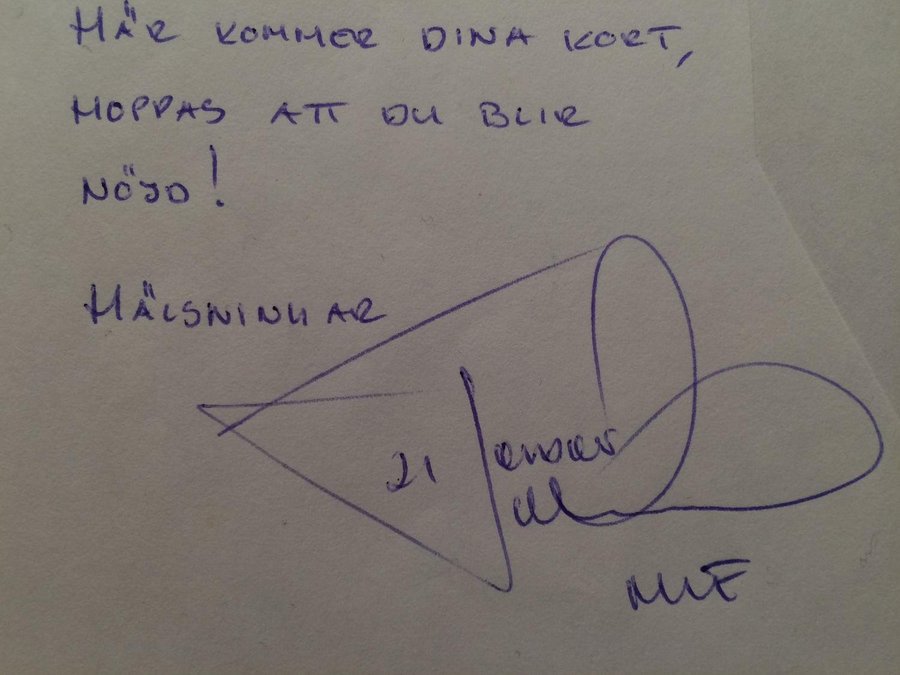 HÄR KOMMER DINA KORT,
HOPPAS ATT DU BLIR
NÖJD!
HÄLSNINGAR
21 Januar